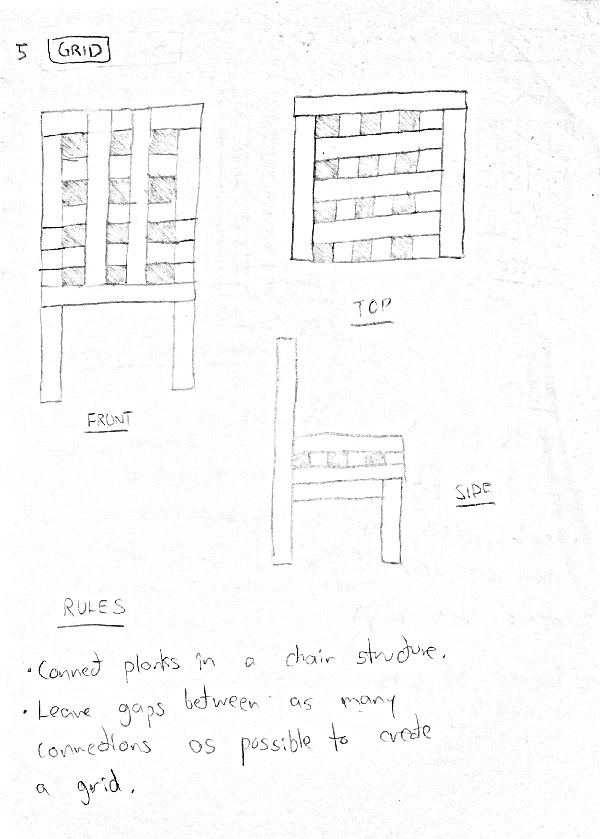 5 GRID
FRONT
TOP
SIDE
RULES
• Connect planks in a chair structure.
• Leave gaps between as many
connections as possible to create
a grid.